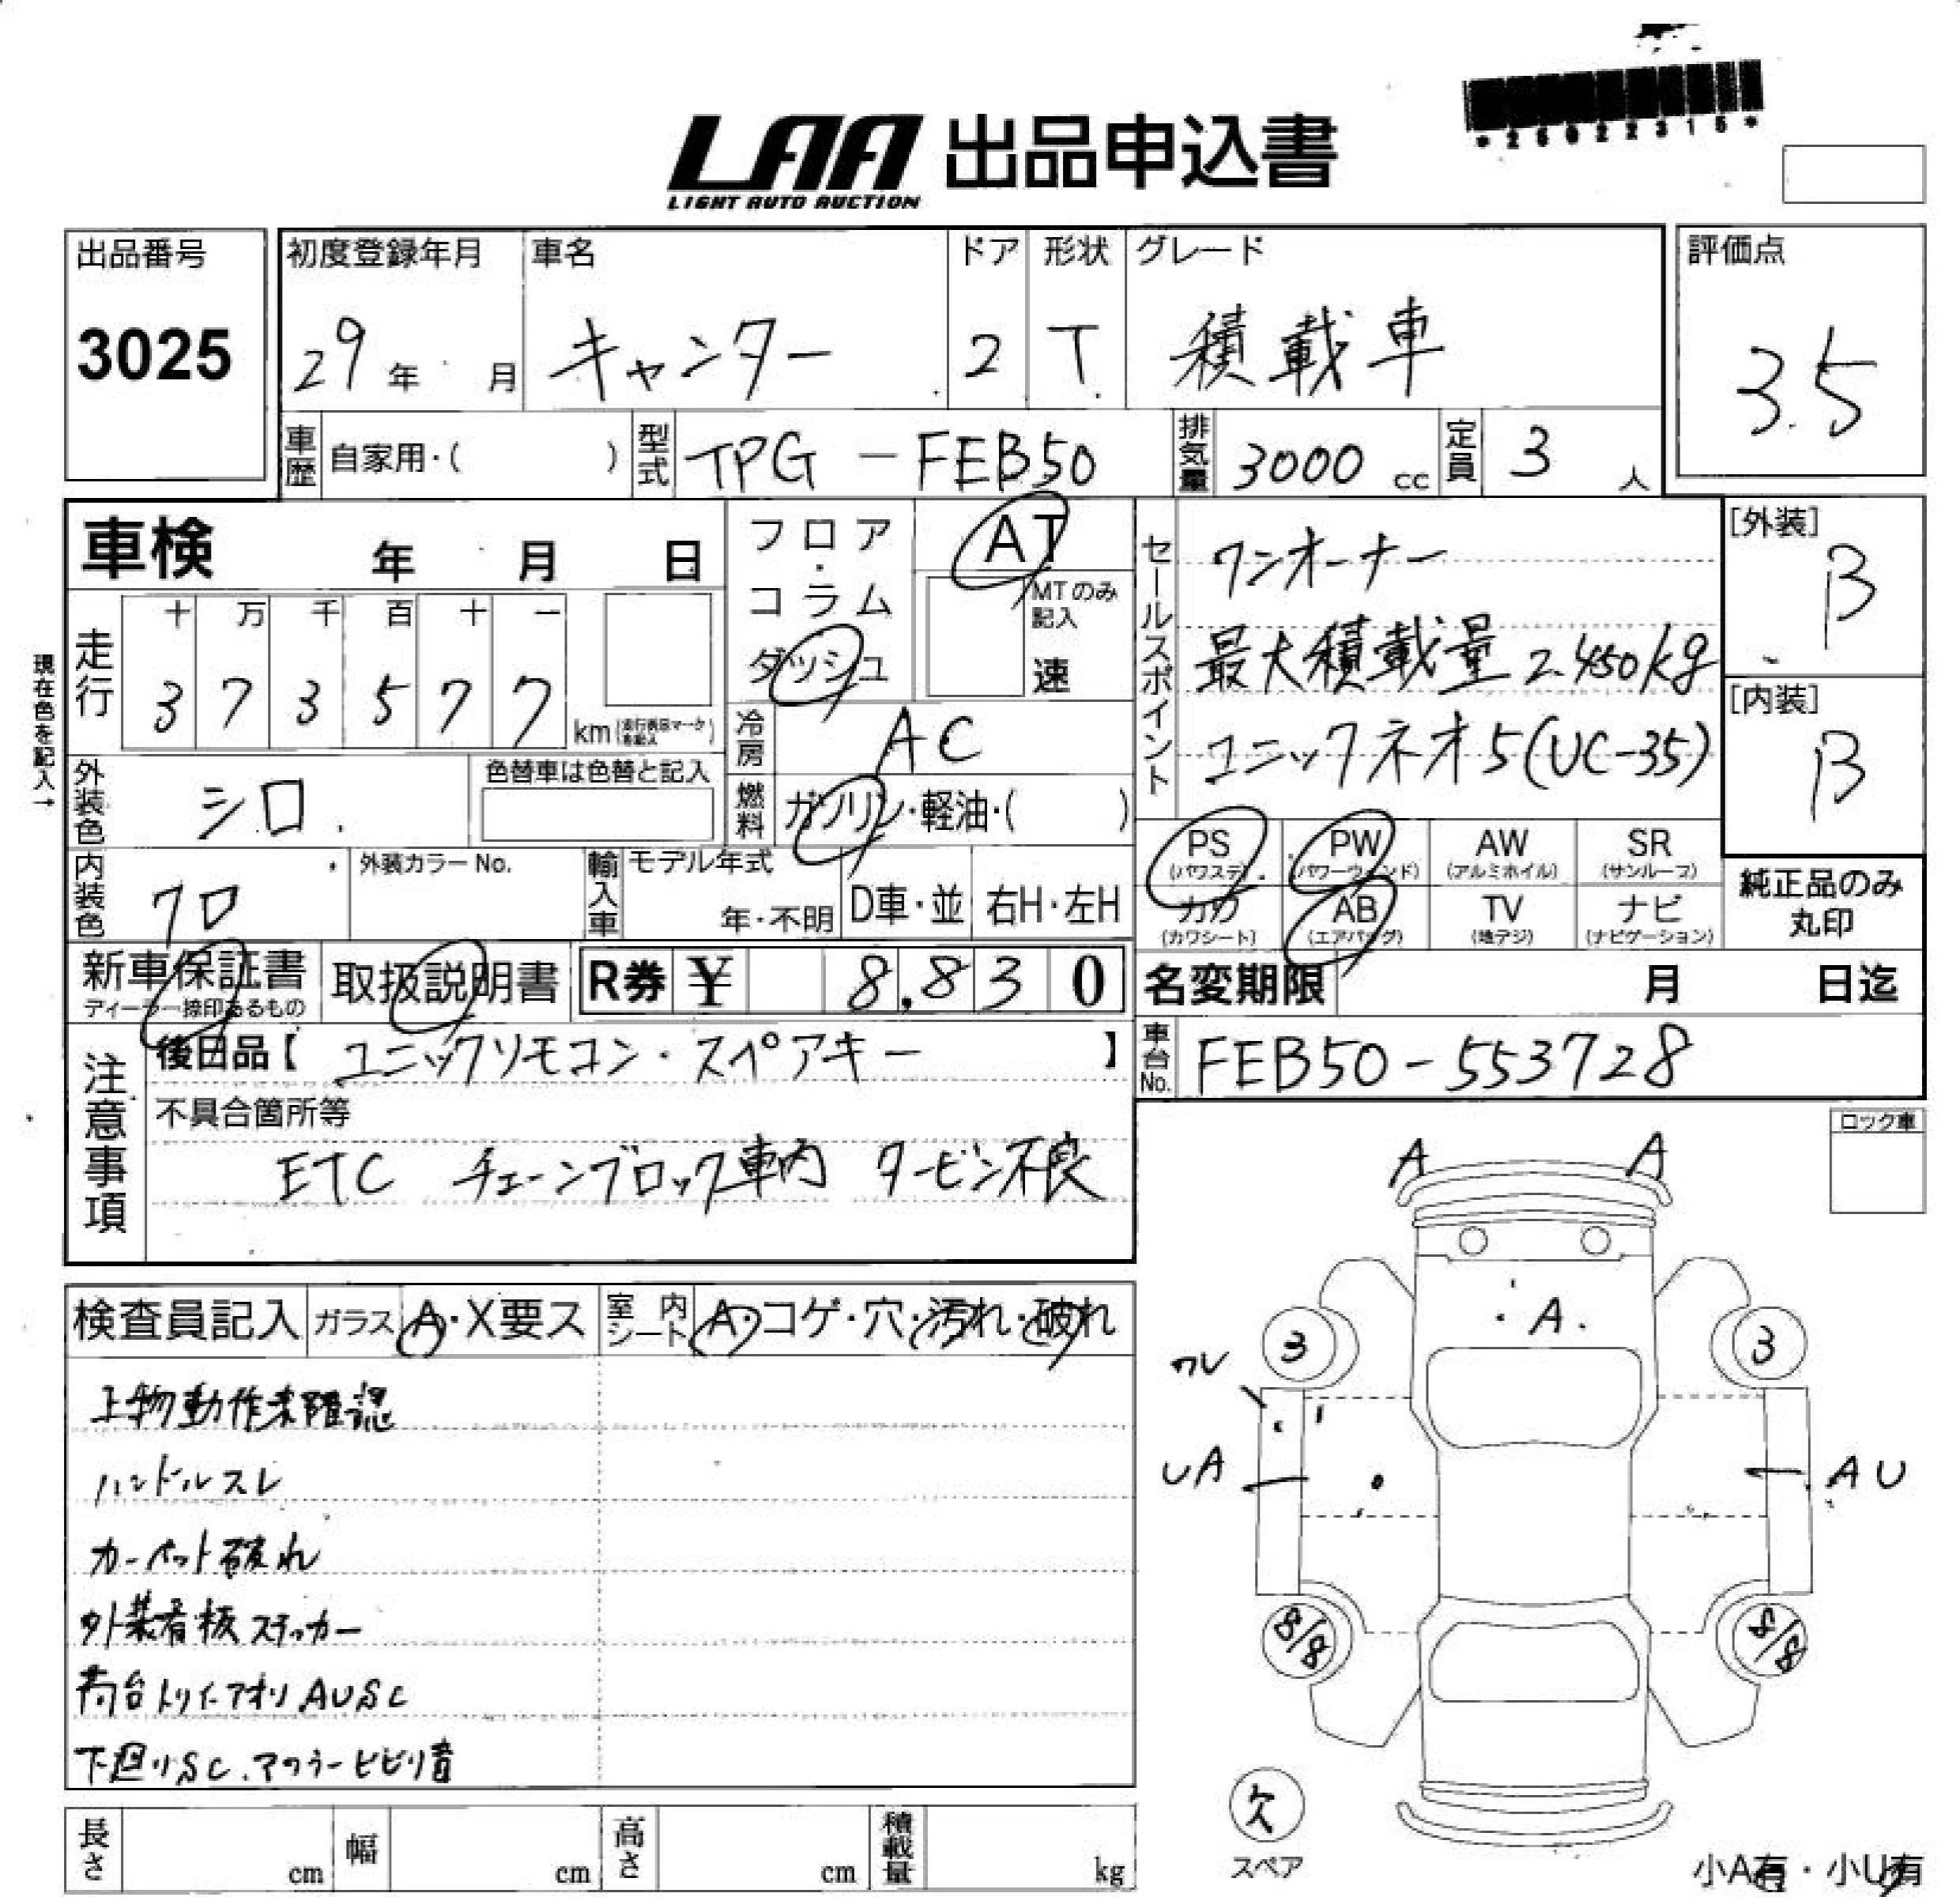 *25022315*
LAA 出品申込書
LIGHT AUTO AUCTION
出品番号
3025
初度登録年月
29年 月
車名
キャンター
ドア
2
形状
T
グレード
積載車
評価点
3.5
車歴 自家用・( )
型式 TPG-FEB50
排気量 3000 cc
定員 3 人
車検 年 月 日
現在色を記入→
走行
十 万 千 百 十 一
3 7 3 5 7 7
km
外装色 シロ
色替車は色替と記入
内装色 クロ
外装カラー No.
フロア・コラム
ダッシュ
AT
MTのみ記入
速
冷房 AC
燃料 ガソリン・軽油・( )
輸入車 モデル年式
年・不明
D車・並
右H・左H
セールスポイント
ワンオーナー
最大積載量2.450kg
ユニックネオ5(UC-35)
[外装]
B
[内装]
B
PS (パワステ) PW (パワーウィンド) AW (アルミホイル) SR (サンルーフ)
カワ (カワシート) AB (エアバッグ) TV (地デジ) ナビ (ナビゲーション)
純正品のみ
丸印
新車保証書
ディーラー捺印あるもの
取扱説明書
R券 ¥ 8,830
名変期限 月 日迄
車台No. FEB50-553728
注意事項
後日品【 ユニックリモコン・スペアキー 】
不具合箇所等
ETC チェーンブロック車内 タービン不良
ロック車
検査員記入
ガラス A・X要ス
室内シート A・コゲ・穴・汚れ・破れ
上物動作未確認
ハンドルスレ
カーペット破れ
外装看板ステッカー
荷台トリイ・アオリAUSC
下廻りSC.マフラービビリ音
A A
A
3 3
ワレ
UA AU
8/8 8/8
欠
スペア
小A有・小U有
長さ cm
幅 cm
高さ cm
積載量 kg